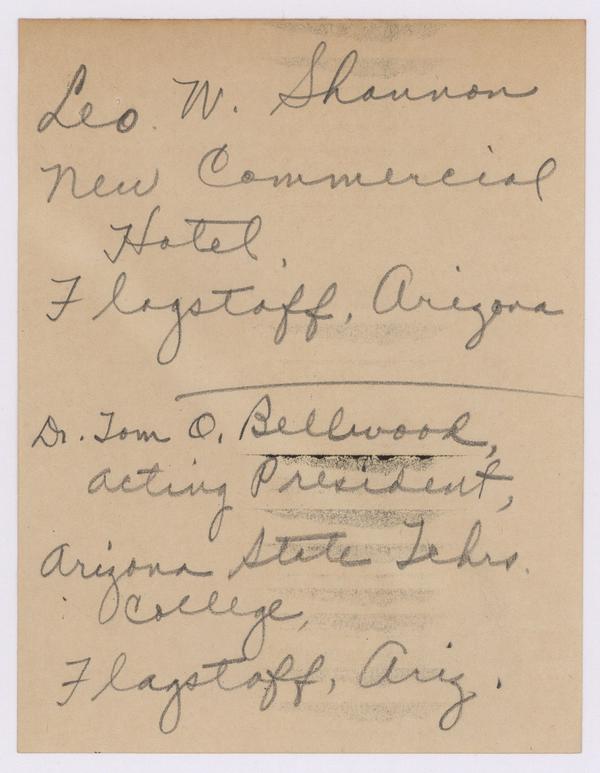 Leo W. Shannon
New Commercial
Hotel,
Flagstaff, Arizona
Dr. Tom O. Bellwood,
Acting President,
Arizona State Tchrs.
College,
Flagstaff, Ariz.